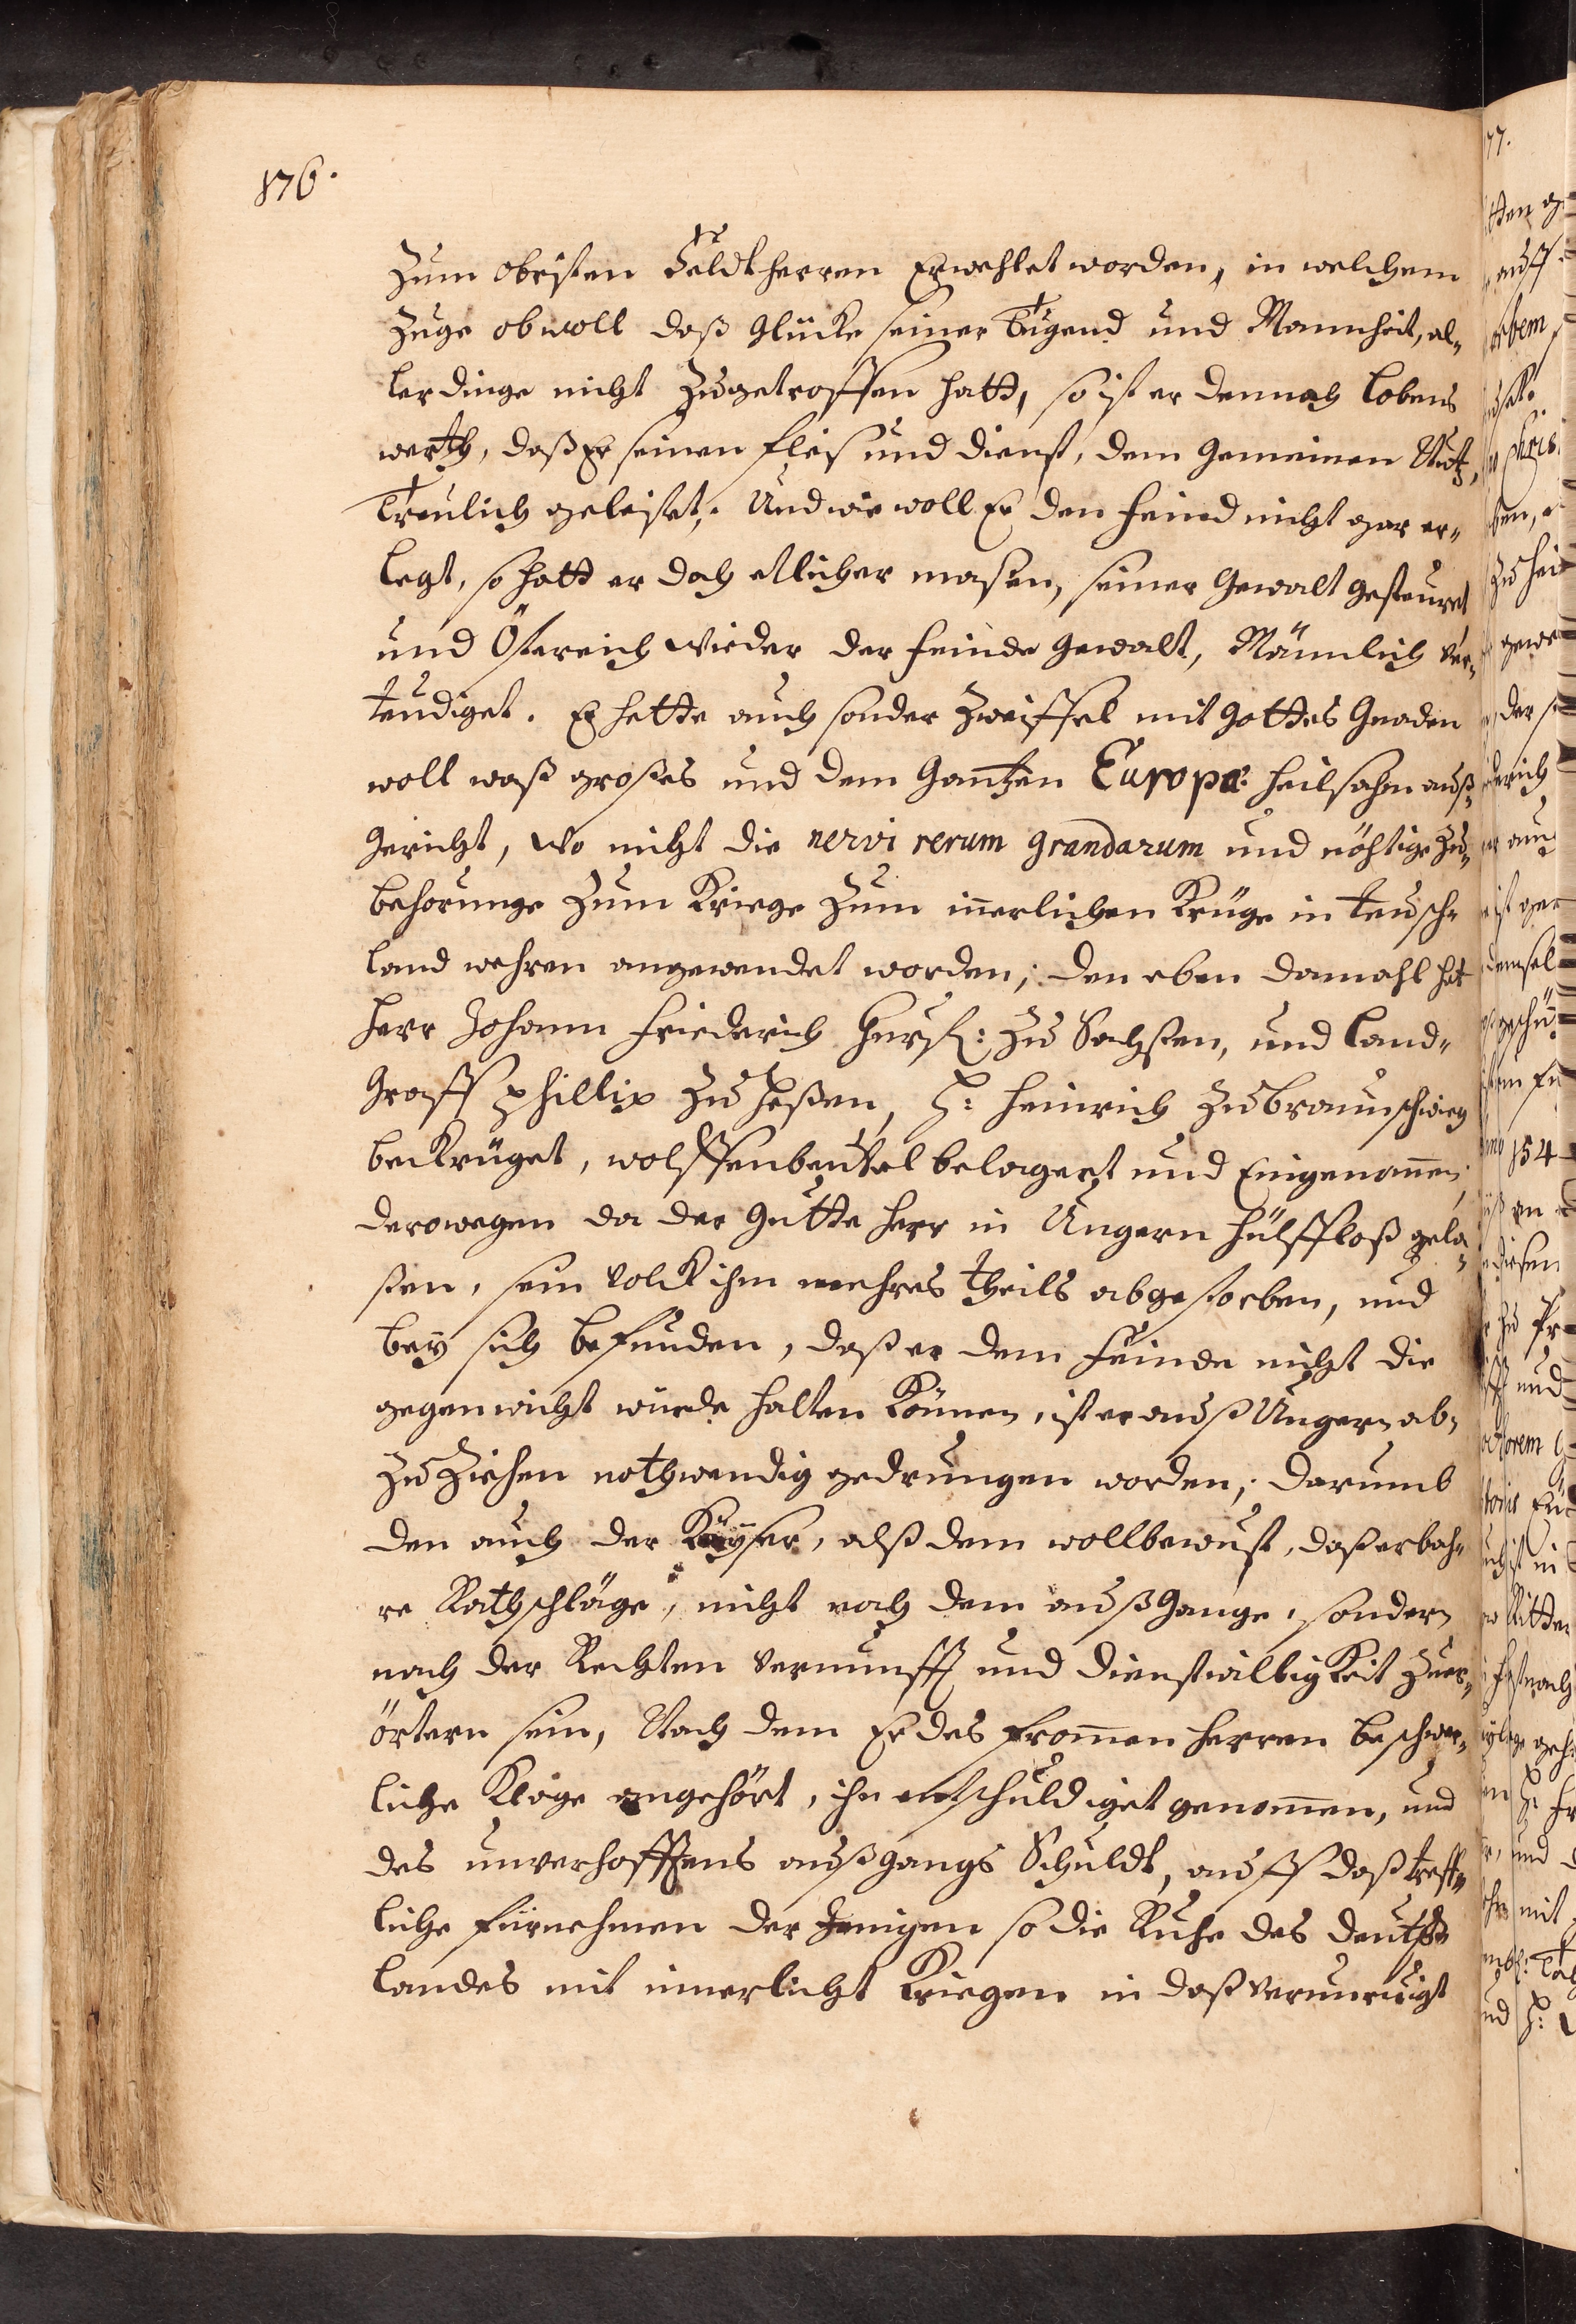 176.
zum obristen Feldtherren Erwehlet worden, in welchem
Zuge obwoll daß Glücke seiner Tugend und Mannheit, al„
lerdinge nicht zugetroffen hatt, so ist er dennoch lobens
werth, daß Er seinen fleis und dienst, dem Gemeinen Nutz,
Treulich geleistet. Und wie woll Er den feind nicht gar er„
legt, so hatt er doch etlicher masen, seiner Gewalt gesteuret
und Östereich wieder der feinde Gewalt, Männlich ver„
teudiget. Er hette auch sonder Zweiffel mit Gottes Gnaden
woll waß großes und dem Gantzen Europæ heilsahm auß„
gericht, wo nicht die nervi rerum grandarum und nöhtige Zu„
behorunge zum Kriege zum innerlichen Krüge in teusch„
land wehren angewendet worden; den eben damahl hat
Herr Johann Friederich Hurf: zu Sachsen, und Land„
Graff Phillip zu Heßen, H: Heinrich zu Braunschwieg
bekrüget, wolffenbeuttel belagert und Eingenommen
derowegen da der Gutte Herr in Ungern hülffloß gela„
sten, sein Volck ihm mehres theils abgestorben, und
bey sich befunden, daß er dem Feinde nicht die
gegenwicht würde halten können, ist er auß Ungern ab„
zuziehen nothwendig gedrungen worden; darumb
den auch der Käyser, alß dem wollbewust, daß erbah„
re Rathschläge, nicht nach dem außgange, sondern
nach der Rechten vernunfft und dienstwilligkeit zuer„
örtern sein, Nach dem Er des frommen Herren beschwer„
liche Klage angehört, ihn entschuldiget genommen, und
des unverhofftens außgangs Schuldt, auff daß treff„
liche fürnehmen der Jenigen so die Ruhe des deutsch
Landes mit innerlicht Kriegen in daß verunruigt